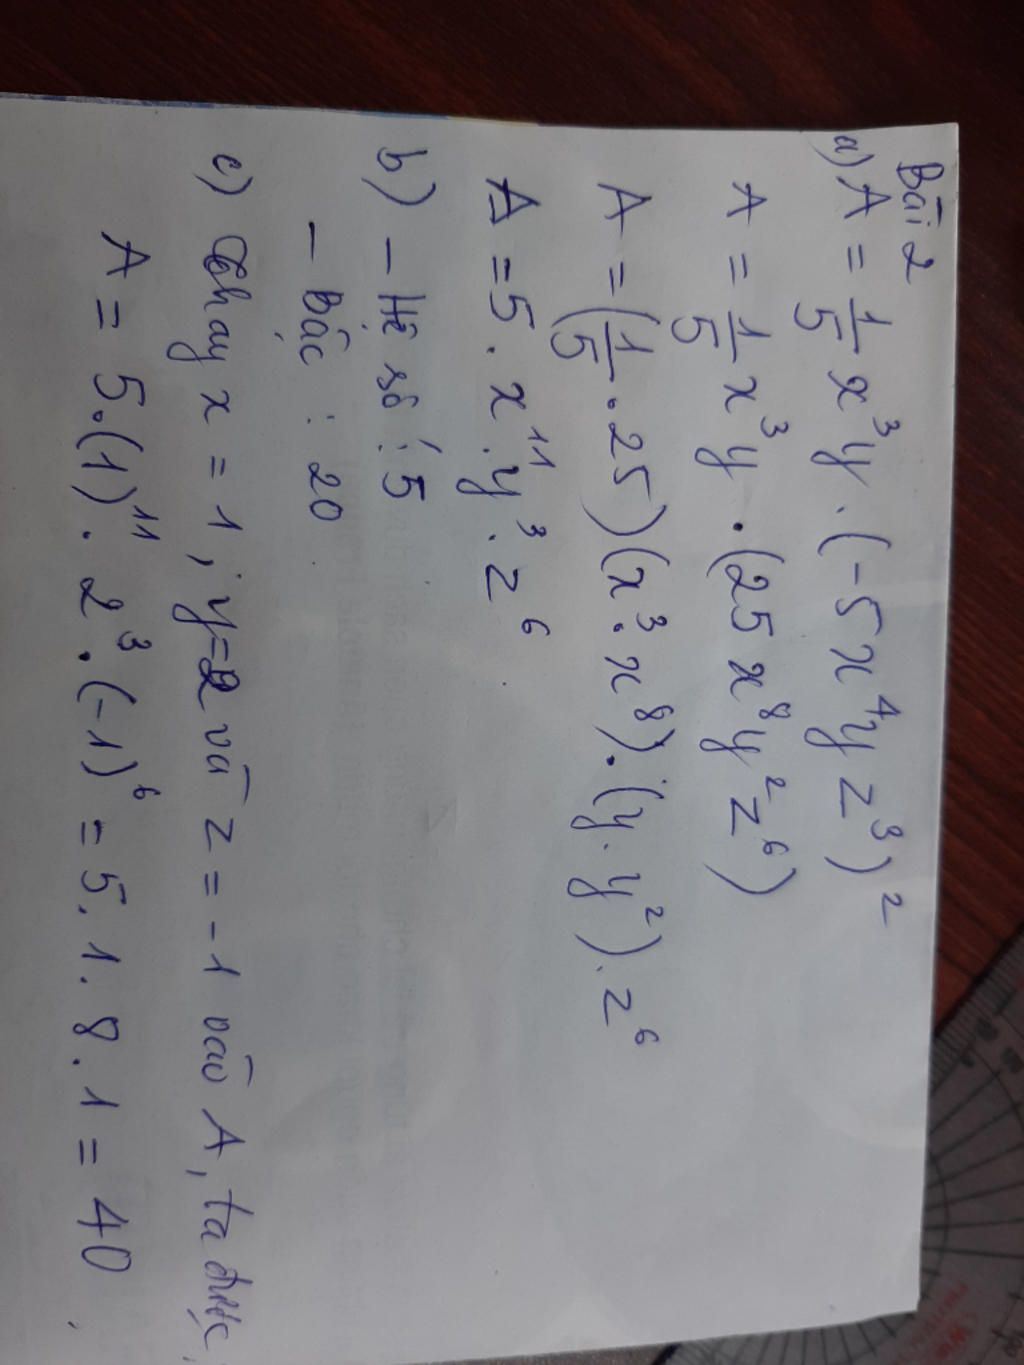 Bài 2
a) A = 1/5 x³y . (-5x⁴yz³)²
A = 1/5 x³y . (25x⁸y²z⁶)
A = (1/5 . 25)(x³.x⁸).(y.y²).z⁶
A = 5 . x¹¹.y³.z⁶
b) - Hệ số : 5
- Bậc : 20
c) Thay x = 1, y=2 và z = -1 vào A, ta được
A = 5.(1)¹¹. 2³.(-1)⁶ = 5.1.8.1 = 40